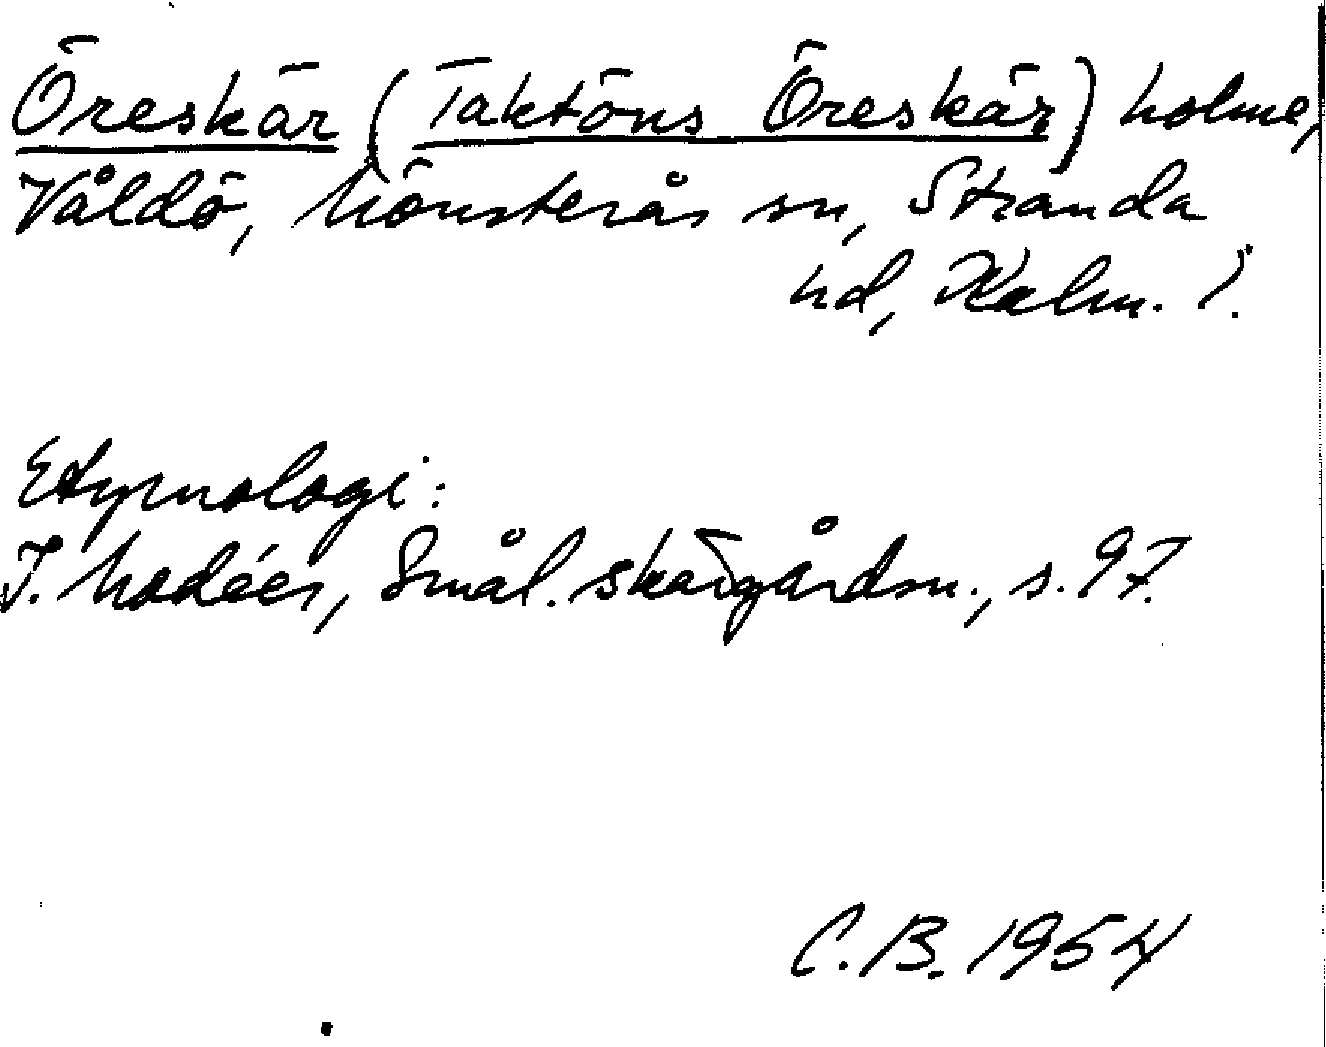 Öreskär (Taktöns Öreskär) holme,
Våldö, Mönsterås sn, Stranda
hd, Kalm. l.
Etymologi:
I. Modéer, Smål. skärgårdsn., s. 97.
C.B. 1954